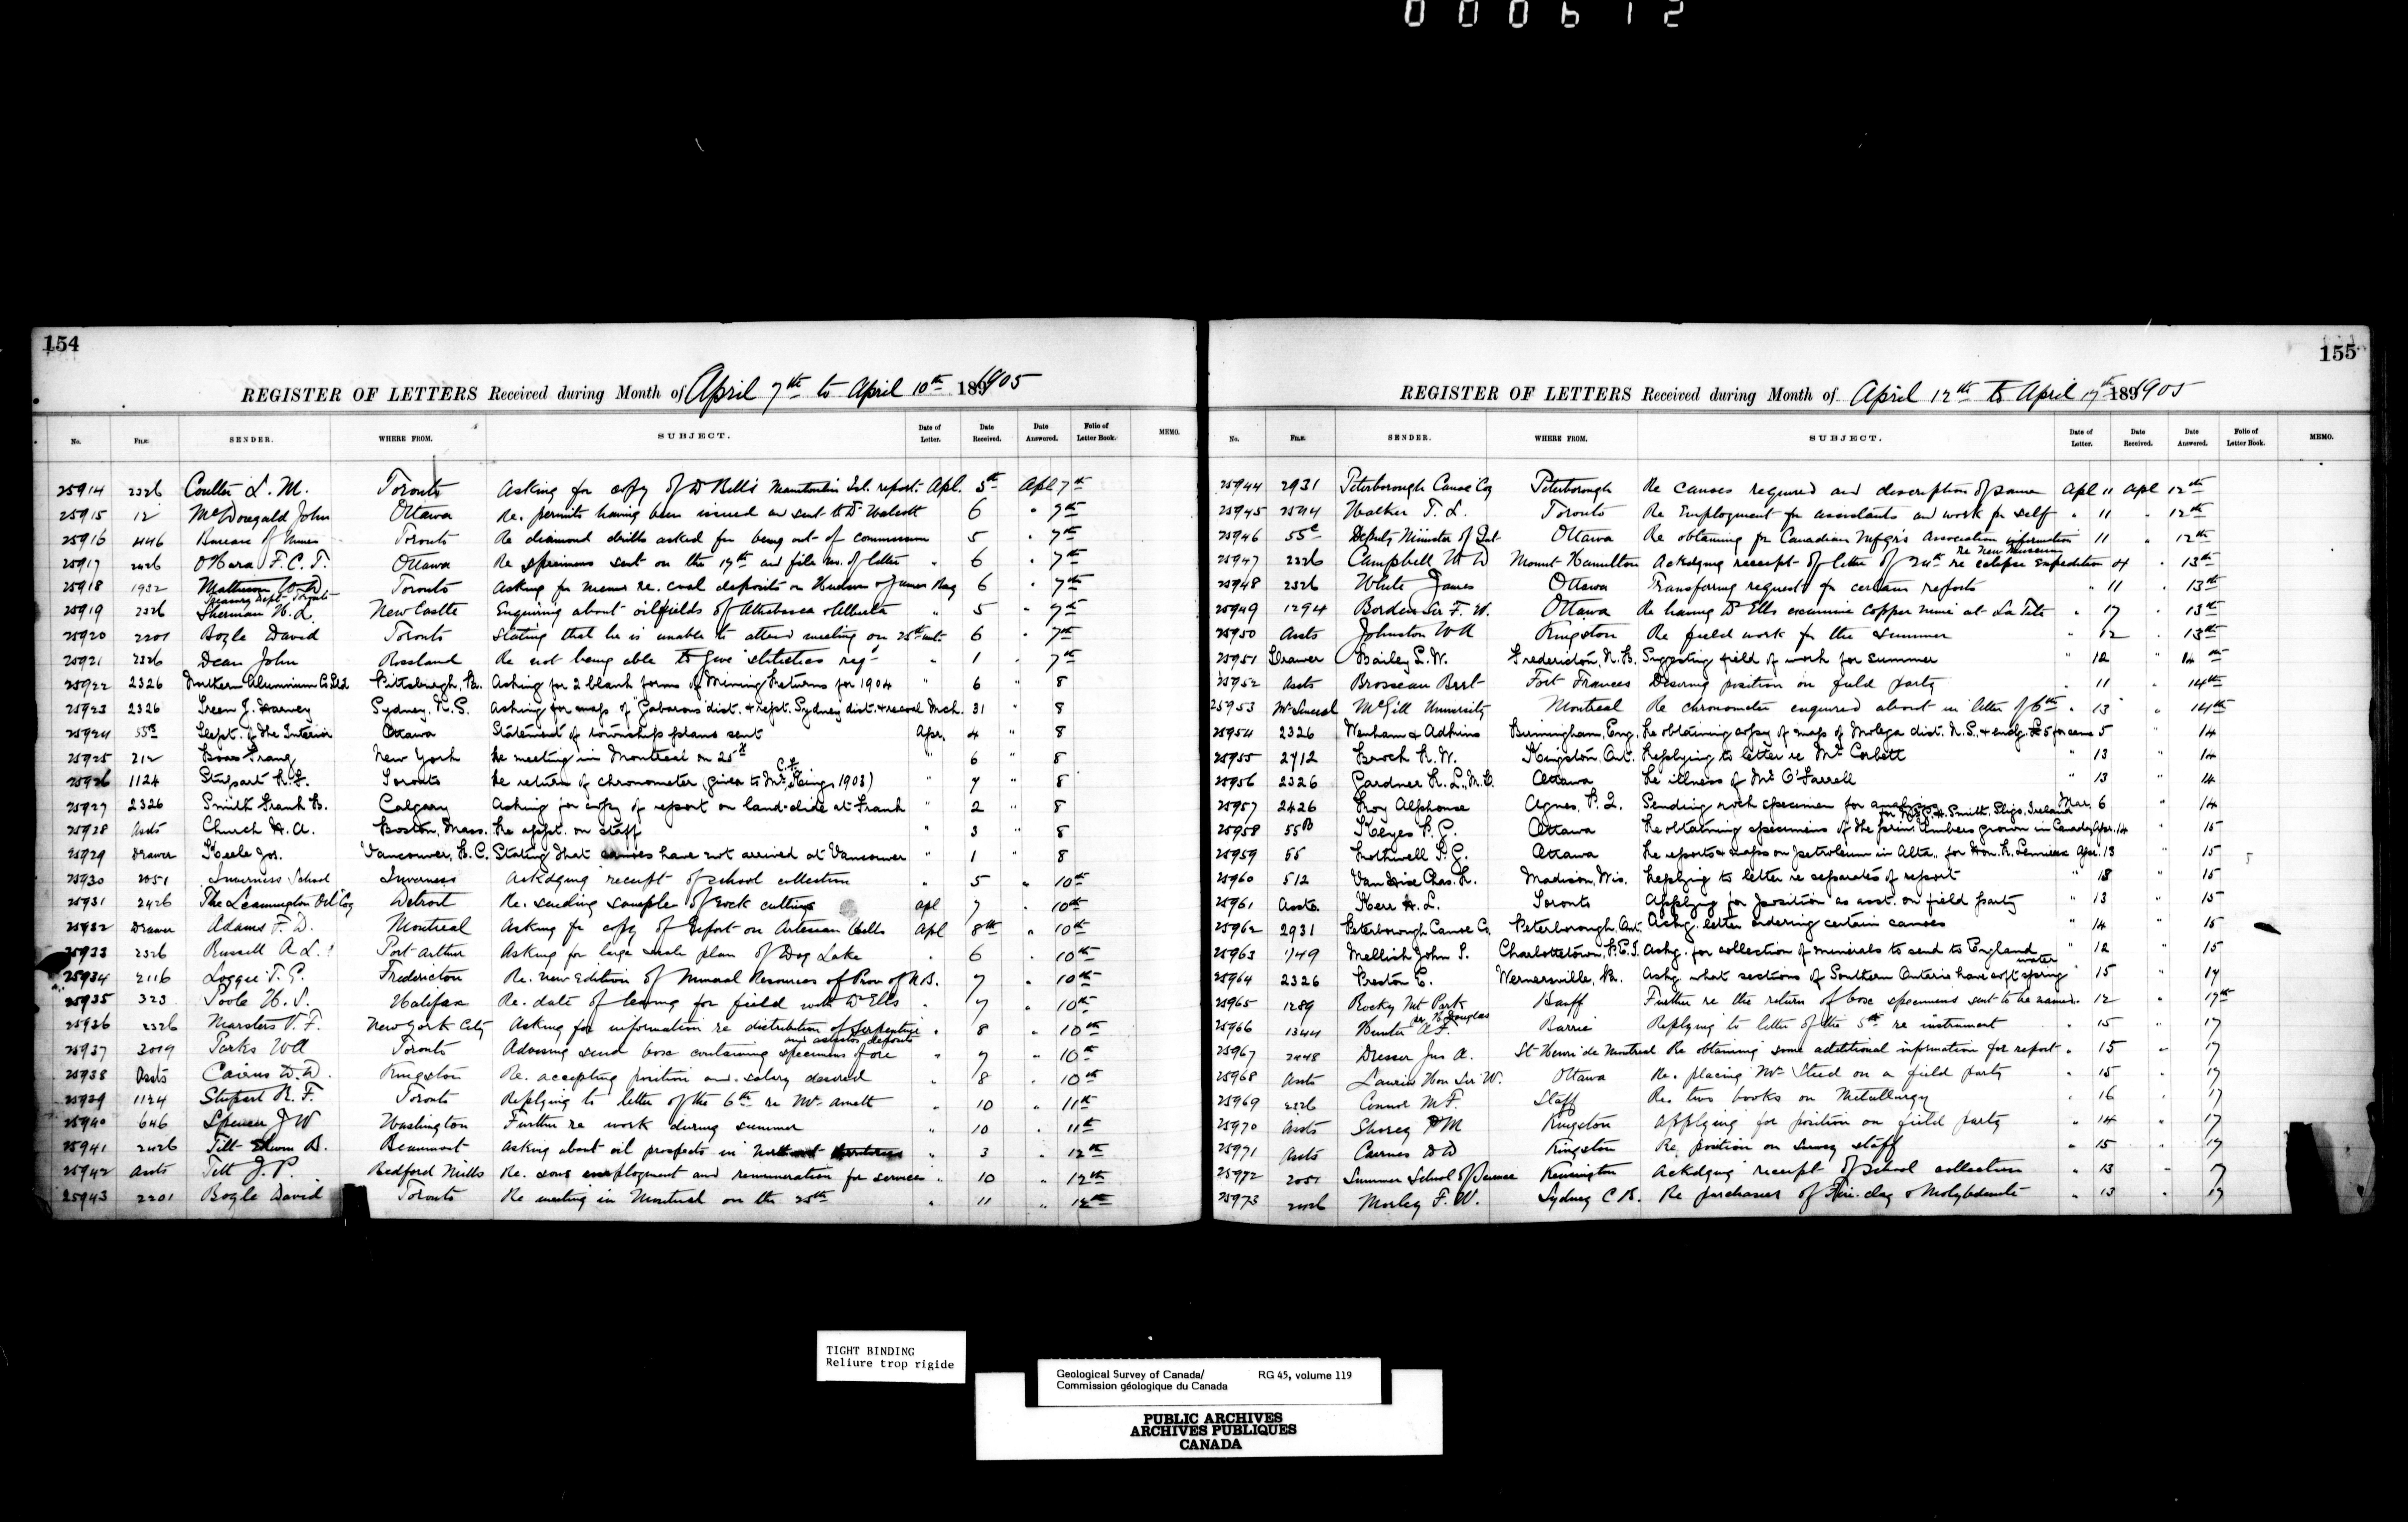 000612
154
REGISTER OF LETTERS Received during Month of April 7th to April 10th 1891905
No. FILE SENDER. WHERE FROM. SUBJECT. Date of Letter. Date Received. Date Answered. Folio of Letter Book. MEMO.
25914 2326 Coulter L. M. Toronto Asking for copy of Dr Bell's Manitoulin Isl. report. Apl. 5th Apl 7th
25915 12 McDougald John Ottawa Re. permits having been issued and sent to Dr Walcott 6 " 7th
25916 446 Bureau of Mines Toronto Re diamond drills asked for being out of commission 5 " 7th
25917 2426 O'Hara F. C. T. Ottawa Re specimens sent on the 17th and file no. of letter " 6 " 7th
25918 1932 Toronto Asking for memo re. coal deposits on Hudson & James Bay 6 " 7th
Treasury Dept. Toronto
25919 2326 Sherman H. L. New Castle Enquiring about oilfields of Athabasca & Alberta " 5 " 7th
25920 2201 Boyle David Toronto Stating that he is unable to attend meeting on 25th inst. 6 " 7th
25921 2326 Dean John Rossland Re not being able to give statistics reqd " 1 " 7th
25922 2326 Northern Aluminium Co. Ltd. Pittsburgh, Pa. Asking for 2 blank forms of Mining Returns for 1904 " 6 " 8
25923 2326 Green J. Harvey Sydney, N.S. Asking for map of "Gabarous" dist. & rept. Sydney dist. & record Mch. 31 " 8
25924 55B Dept. of the Interior Ottawa Statement of township plans sent Apr. 4 " 8
25925 212 Boas Franz New York Re meeting in Montreal on 25th " 6 " 8
25926 1124 Stupart R. F. Toronto Re return of chronometer (given to Mr. C. F. King, 1903) " 7 " 8
25927 2326 Smith Frank B. Calgary Asking for copy of report on land-slide at Frank " 2 " 8
25928 Assts Church H. A. Boston, Mass. Re appt. on staff " 3 " 8
25929 Drawer Keele Jos. Vancouver, B.C. Stating that canoes have not arrived at Vancouver " 1 " 8
25930 2051 Inverness School Inverness Ackdging receipt of school collection " 5 " 10th
25931 2426 The Leamington Oil Coy Detroit Re. sending sample of rock cuttings apl 7 " 10th
25932 Drawer Adams F. D. Montreal Asking for copy of Report on Artesian Wells Apl 8th " 10th
25933 2326 Russell A. L. Port Arthur Asking for large scale plan of Dog Lake " 6 " 10th
25934 2116 Loggie T. G. Fredericton Re. New Edition of Mineral Resources of Prov of N.B. 7 " 10th
25935 323 Poole H. S. Halifax Re. date of leaving for field with Dr Ells " 7 " 10th
25936 2326 Marsters V. F. New York City Asking for information re distribution of Serpentine " 8 " 10th
and asbestos deposits
25937 3019 Parks WA Toronto Advising send box containing specimens of ore " 7 " 10th
25938 Assts Cairns D. D. Kingston Re. accepting position and salary desired " 8 " 10th
25939 1124 Stupart R. F. Toronto Replying to letter of the 6th re Mr. Arnett " 10 " 11th
25940 646 Spencer J W Washington Further re work during summer " 10 " 11th
25941 2426 Tilt B. Beaumont asking about oil prospects in " 3 " 12th
25942 Assts Tett J. P. Bedford Mills Re. sons employment and remuneration for services " 10 " 12th
25943 2201 Boyle David Toronto Re meeting in Montreal on the 25th " 11 " 12th
155
REGISTER OF LETTERS Received during Month of April 12th to April 17th 1891905
No. FILE. SENDER. WHERE FROM. SUBJECT. Date of Letter. Date Received. Date Answered. Folio of Letter Book. MEMO.
25944 2931 Peterborough Canoe Coy Peterborough Re canoes required and description of same Apl 11 Apl 12th
25945 Walker T. L. Toronto Re Employment for assistants and work for self " 11 " 12th
25946 55c Deputy Minister of Int Ottawa Re obtaining for Canadian Mfgr's Association information 11 " 12th
re New Museum
25947 2326 Campbell W W Mount Hamilton Ackdging receipt of letter of 24th re eclipse expedition 4 " 13th
25948 2326 White James Ottawa Transferring request for certain reports " 11 " 13th
25949 1294 Borden Sir F. W. Ottawa Re having Dr Ells examine Copper mine at La Tete " 17 " 13th
25950 Assts Johnston WA Kingston Re field work for the summer " 12 " 13th
25951 Drawer Bailey L. W. Fredericton, N.B. Suggesting field of work for summer " 12 " 14th
25952 Assts Brosseau Fort Frances Desiring position on field party " 11 " 14th
25953 McGill University Montreal Re chronometer enquired about in letter of 6th " 13 " 14th
25954 2326 Wenham & Adkins Birmingham, Eng. Re obtaining copy of map of Molega dist. N.S., & endg. for same 5 " 14
25955 2712 Brock R. W. Kingston, Ont. Replying to letter re Mr. Corbett " 13 " 14
25956 2326 Gardner R. L., M.D. Ottawa Re illness of Mr. O'Farrell " 13 " 14
25957 2426 Troy Alphonse Agnes, P. Q. Sending rock specimen for analysis Mar. 6 " 14
for C. H. Smith, Sligo, Ireland
25958 55B Keyes P. G. Ottawa Re obtaining specimens of the prin. timbers grown in Canada Apr. 14 " 15
25959 55 Rothwell T. G. Ottawa Re reports & maps on petroleum in Alta., for Hon. R. Lemieux Apr. 13 " 15
25960 512 Van Hise Chas. R. Madison, Wis. Replying to letter re separates of report " 18 " 15
25961 Assts. Kerr H. L. Toronto Applying for position as asst. on field party " 13 " 15
25962 2931 Peterborough Canoe Co. Peterborough, Ont. Ackg. letter ordering certain canoes " 14 " 15
25963 1149 Mellish John T. Charlottetown, P.E.I. Askg. for collection of minerals to send to England " 12 " 15
25964 2326 Preston E. Wernersville, Pa. Askg. what sections of Southern Ontario have soft spring water " 15 " 17
25965 1289 Rocky Mt Park Banff Further re the return of box specimens sent to be named. 12 " 17th
per H. Douglas
25966 1344 Hunter A. F. Barrie Replying to letter of the 5th re instrument " 15 " 17
25967 2448 Dresser Jno A. St Henri de Montreal Re obtaining some additional information for report " 15 " 17
25968 Assts Laurier Hon Sir W. Ottawa Re. placing Mr. Steed on a field party " 15 " 17
25969 2326 Connor M. F. Staff Re. two books on Metallurgy " 16 " 17
25970 Assts Shorey P M Kingston Applying for position on field party " 14 " 17
25971 Assts Cairnes D D Kingston Re position on Survey staff " 15 " 17
25972 2051 Summer School of Science Kensington Ackdging receipt of School collection " 13 " 17
25973 2426 Morley F. W. Sydney C. B. Re purchasers of Fire-clay & Molybdenite " 13 " 17
TIGHT BINDING
Reliure trop rigide
Geological Survey of Canada/ RG 45, volume 119
Commission géologique du Canada
PUBLIC ARCHIVES
ARCHIVES PUBLIQUES
CANADA